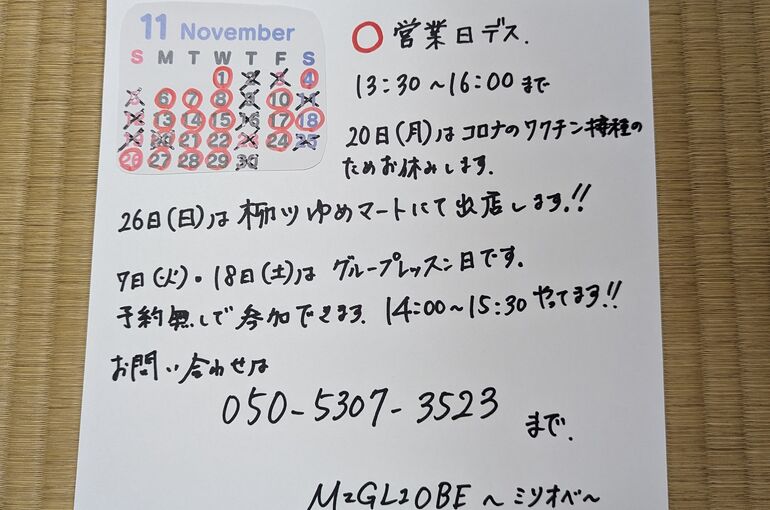 11 November
S M T W T F S
1 2 3 4
5 6 7 8 9 10 11
12 13 14 15 16 17 18
19 20 21 22 23 24 25
26 27 28 29 30
○営業日デス.
13:30〜16:00まで
20日(月)はコロナのワクチン接種の
ためお休みします.
26日(日)は柳ツゆめマートにて出店します.!!
7日(火)・18日(土)は グループレッスン日です.
予約無しで参加できます. 14:00〜15:30 やってます!!
お問い合わせは
050-5307-3523 まで.
M2GL2OBE 〜ミツオベ〜